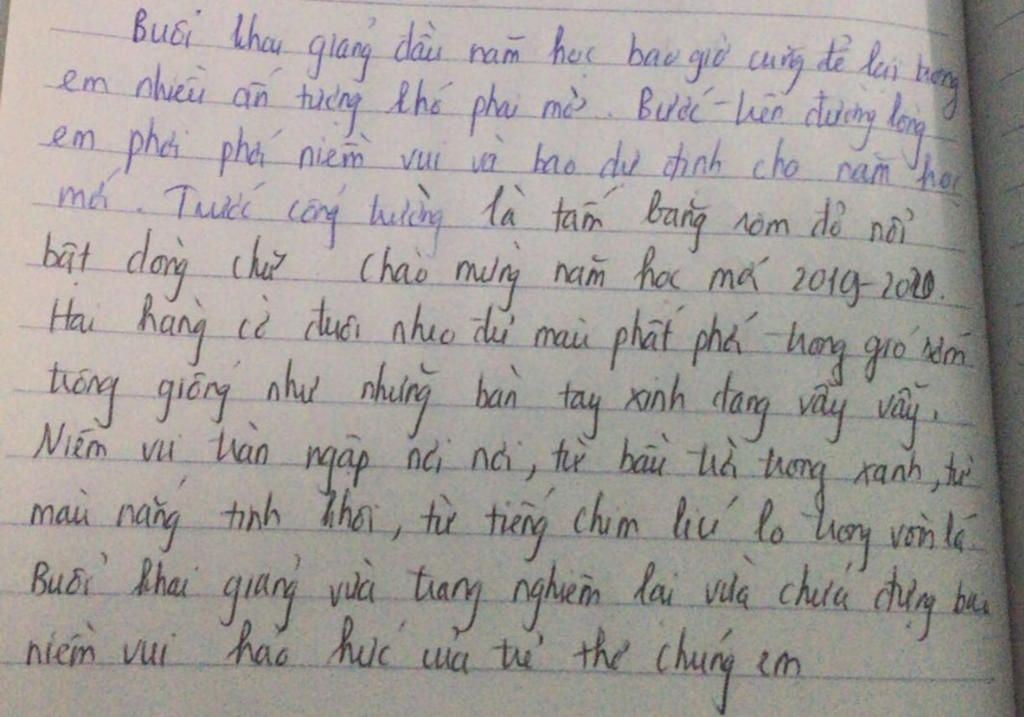 Buổi khai giảng đầu năm học bao giờ cũng để lại trong
em nhiều ấn tượng khó phai mờ. Bước trên đường lòng
em phơi phới niềm vui và bao dự định cho năm học
mới. Trước cổng trường là tấm băng rôm đỏ nổi
bật dòng chữ Chào mừng năm học mới 2019-2020.
Hai hàng cờ đuôi nheo đủ màu phất phới trong gió sớm
trông giống như những bàn tay xinh đang vẫy vẫy.
Niềm vui tràn ngập nơi nơi, từ bầu trời trong xanh, từ
màu nắng tinh khôi, từ tiếng chim líu lo trong vòm lá
Buổi khai giảng vừa trang nghiêm lại vừa chứa đựng bao
niềm vui háo hức của trẻ thơ chúng em